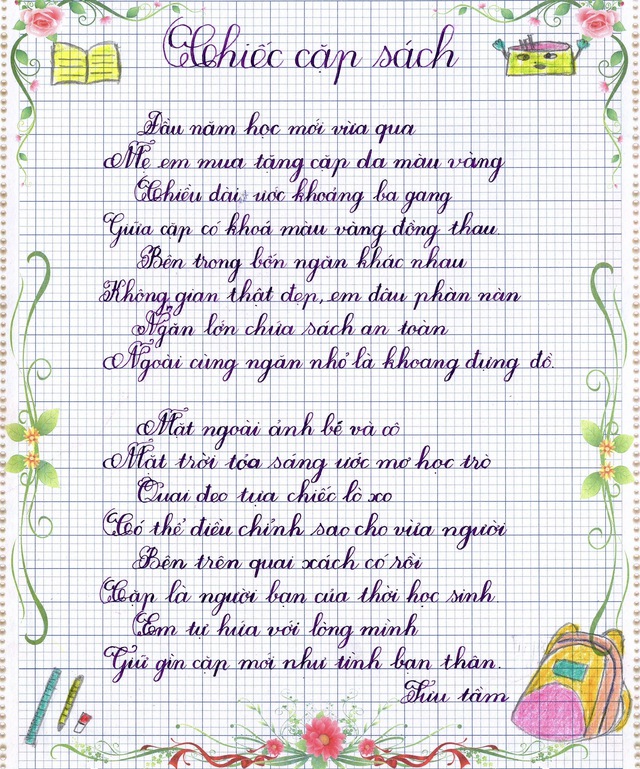 Chiếc cặp sách
Đầu năm học mới vừa qua
Mẹ em mua tặng cặp da màu vàng
Chiều dài ước khoảng ba gang
Giữa cặp có khoá màu vàng đồng thau.
Bên trong bốn ngăn khác nhau
Không gian thật đẹp, em đâu phàn nàn
Ngăn lớn chứa sách an toàn
Ngoài cùng ngăn nhỏ là khoang đựng đồ.
Mặt ngoài ảnh bé và cô
Mặt trời tỏa sáng ước mơ học trò
Quai đeo tựa chiếc lò xo
Có thể điều chỉnh sao cho vừa người
Bên trên quai xách có rồi
Cặp là người bạn của thời học sinh.
Em tự hứa với lòng mình
Giữ gìn cặp mới như tình bạn thân.
Sưu tầm